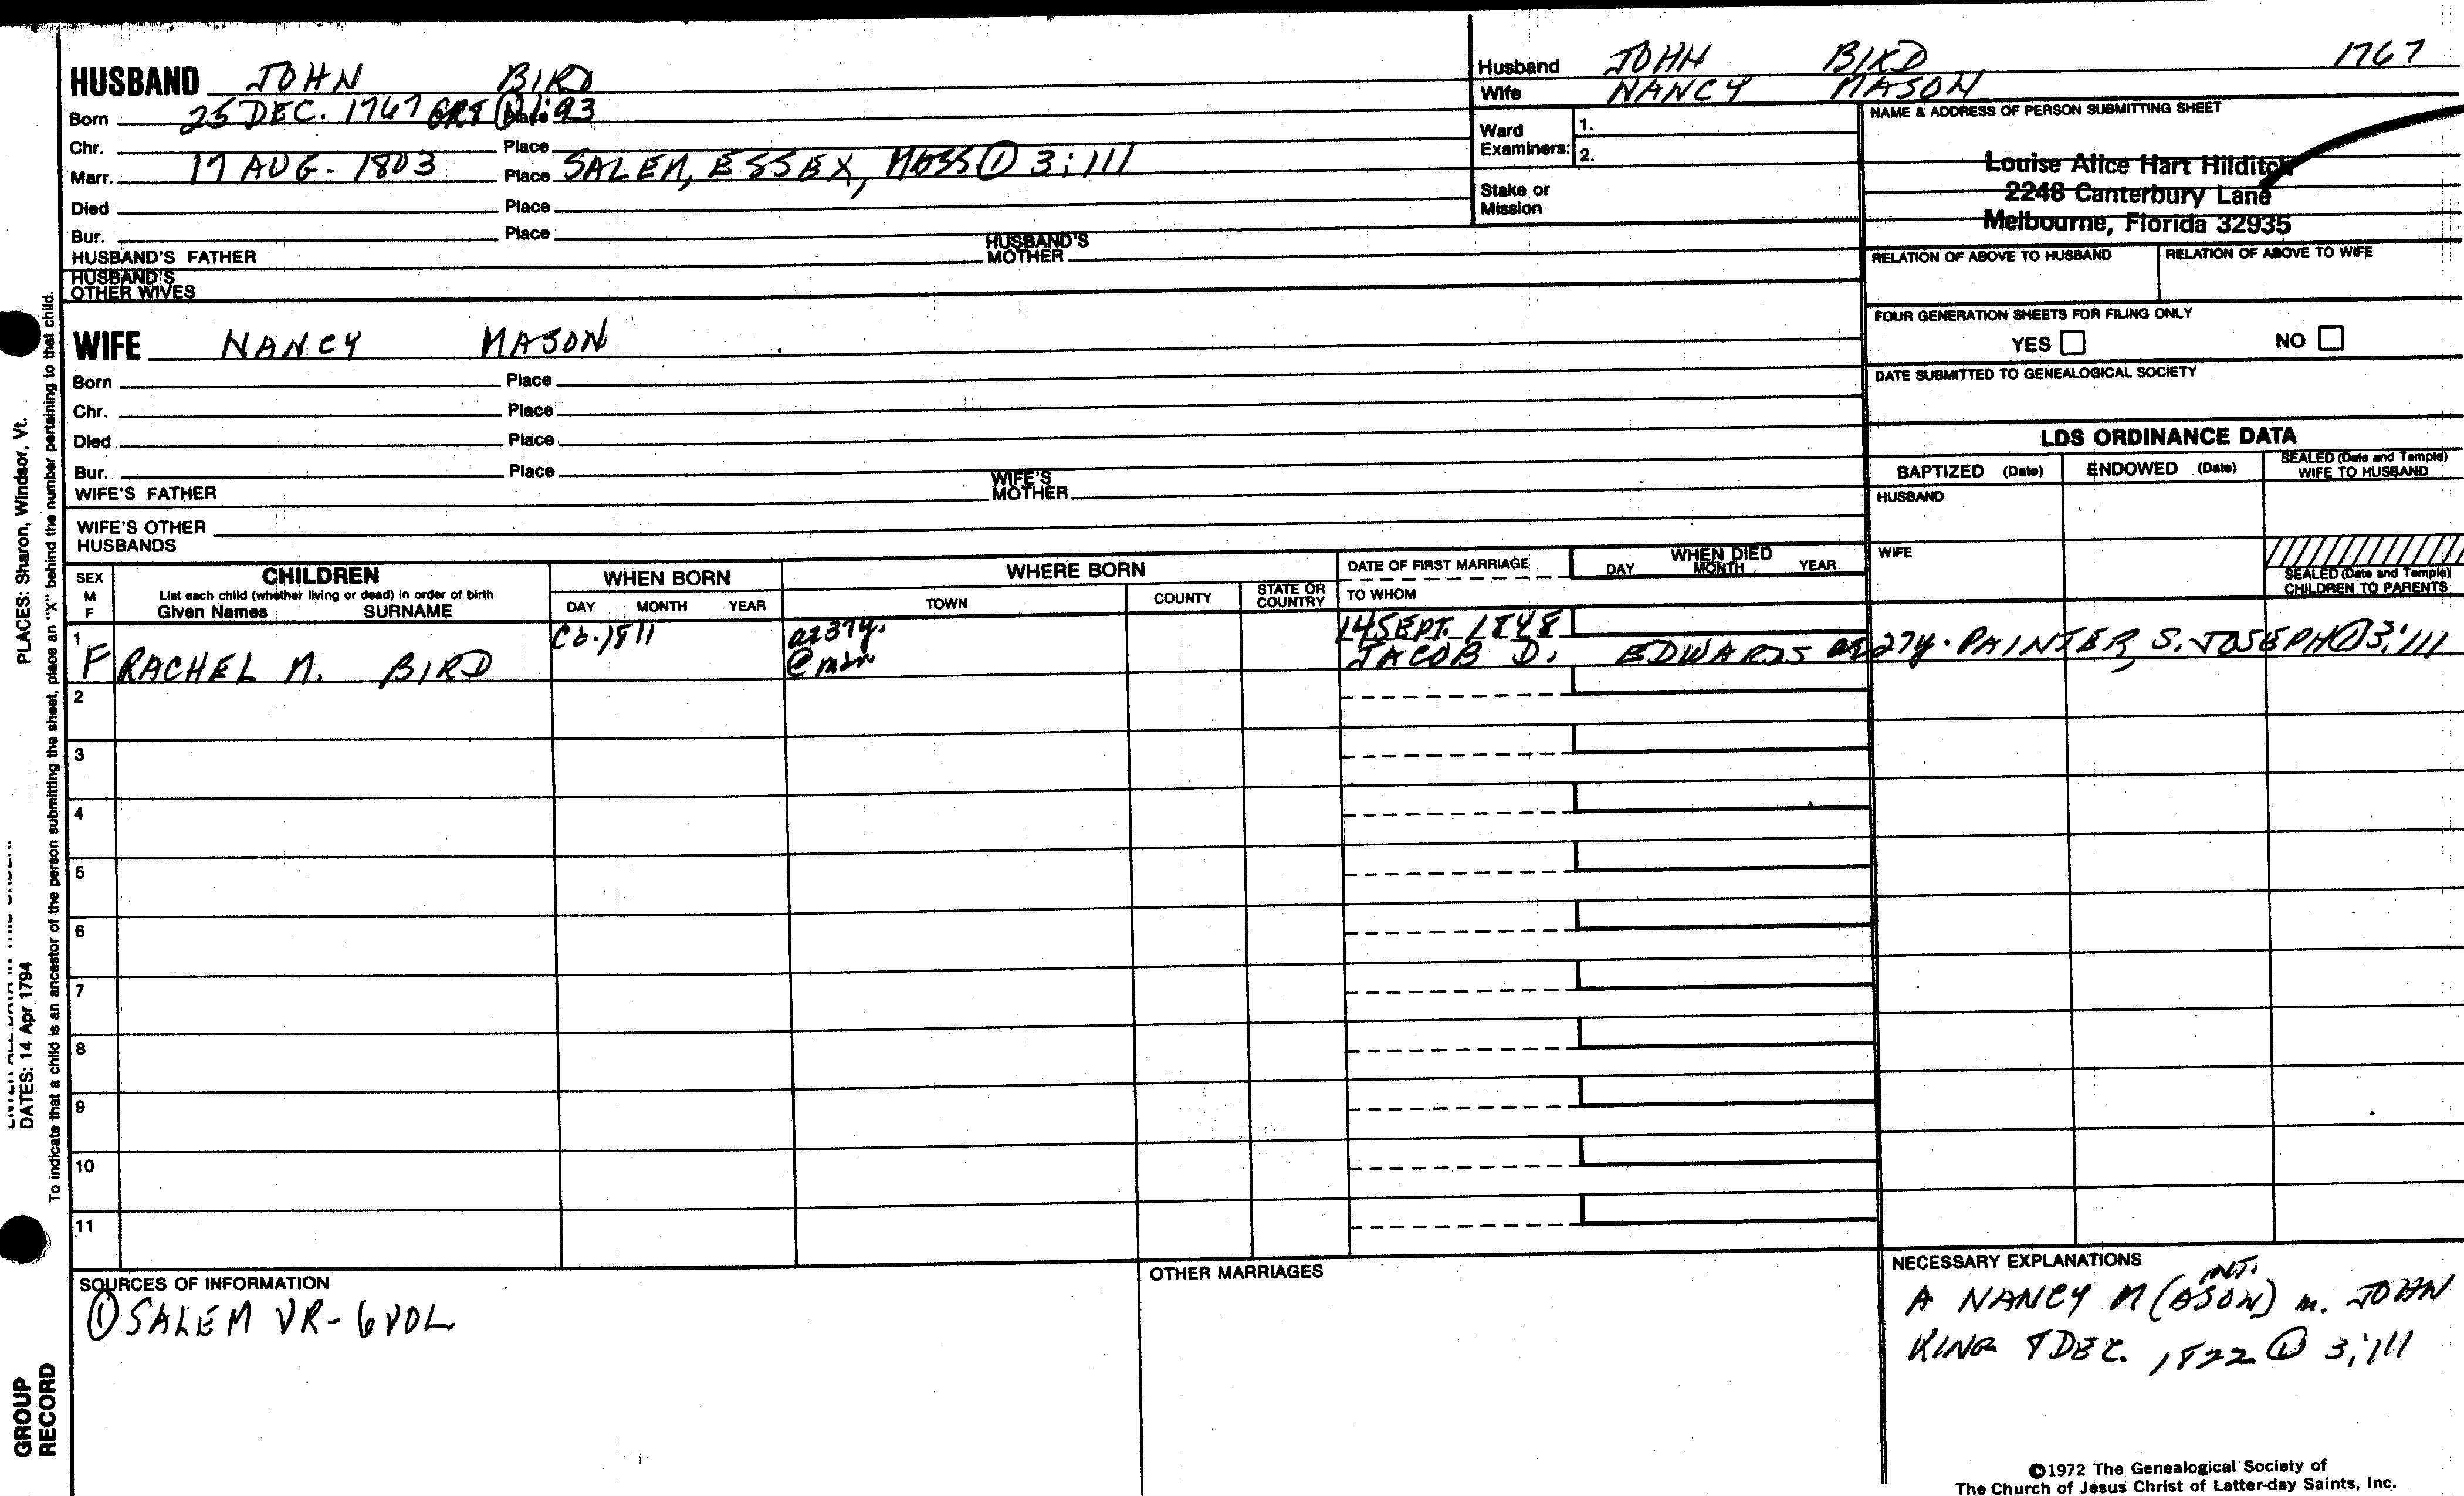 HUSBAND JOHN BIRD
Born 25 DEC. 1767 GRS ① 1:93 Place
Chr. Place
Marr. 17 AUG. 1803 Place SALEM, ESSEX, MASS ① 3:111
Died Place
Bur. Place
HUSBAND'S FATHER HUSBAND'S MOTHER
HUSBAND'S OTHER WIVES
Husband JOHN BIRD 1767
Wife NANCY MASON
Ward Examiners: 1.
2.
Stake or Mission
NAME & ADDRESS OF PERSON SUBMITTING SHEET
Louise Alice Hart Hilditch
2248 Canterbury Lane
Melbourne, Florida 32935
RELATION OF ABOVE TO HUSBAND RELATION OF ABOVE TO WIFE
FOUR GENERATION SHEETS FOR FILING ONLY
YES NO
DATE SUBMITTED TO GENEALOGICAL SOCIETY
WIFE NANCY MASON
Born Place
Chr. Place
Died Place
Bur. Place
WIFE'S FATHER WIFE'S MOTHER
WIFE'S OTHER HUSBANDS
LDS ORDINANCE DATA
BAPTIZED (Date) ENDOWED (Date) SEALED (Date and Temple) WIFE TO HUSBAND
HUSBAND
WIFE
SEALED (Date and Temple) CHILDREN TO PARENTS
SEX M F
CHILDREN
List each child (whether living or dead) in order of birth
Given Names SURNAME
WHEN BORN
DAY MONTH YEAR
WHERE BORN
TOWN COUNTY STATE OR COUNTRY
DATE OF FIRST MARRIAGE
TO WHOM
WHEN DIED
DAY MONTH YEAR
1 Cb. 1811 ae 37y. 14 SEPT. 1848
F RACHEL M. BIRD @ mar JACOB D. EDWARDS ae 27y. PAINTER, S. JOSEPH ① 3:111
2
3
4
5
6
7
8
9
10
11
SOURCES OF INFORMATION
① SALEM VR- 6 VOL
OTHER MARRIAGES
NECESSARY EXPLANATIONS
INT.
A NANCY M (ASON) m. JOHN
KING 8 DEC. 1822 ① 3:111
©1972 The Genealogical Society of
The Church of Jesus Christ of Latter-day Saints, Inc.
PLACES: Sharon, Windsor, Vt.
DATES: 14 Apr 1794
To indicate that a child is an ancestor of the person submitting the sheet, place an "X" behind the number pertaining to that child.
GROUP
RECORD